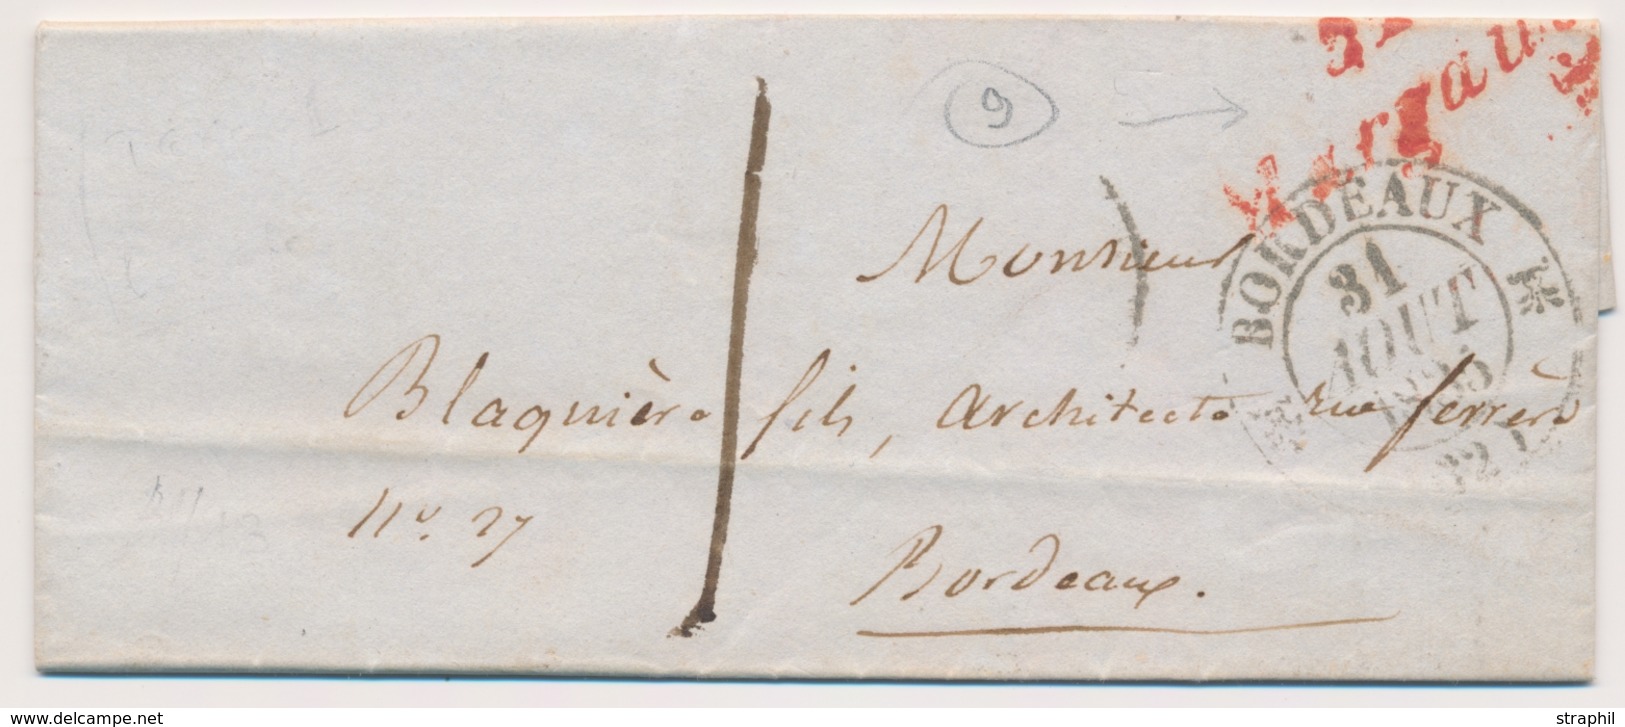 31
Margaux
9
BORDEAUX
31
AOUT
1835
Monsieur
Blaquière fils, Architecte rue ferrère
n° 27
Bordeaux.
www.delcampe.net
straphil